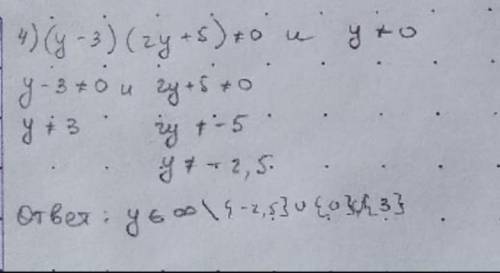 4) (y-3) (2y+5) ≠0 и y≠0
y-3≠0 и 2y+5≠0
y≠3 2y≠-5
y≠-2,5.
Ответ: y ∈ ∞ \ {-2,5} ∪ {0} ∪ {3}